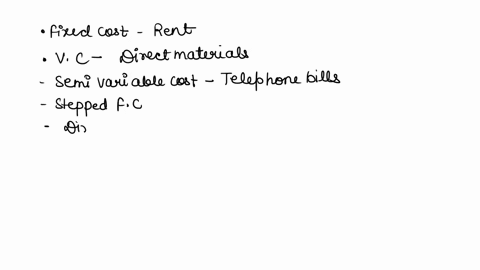 • fixed cost - Rent
• V. C - Direct materials
- Semi variable cost - Telephone bills
- Stepped F.C
- Dis